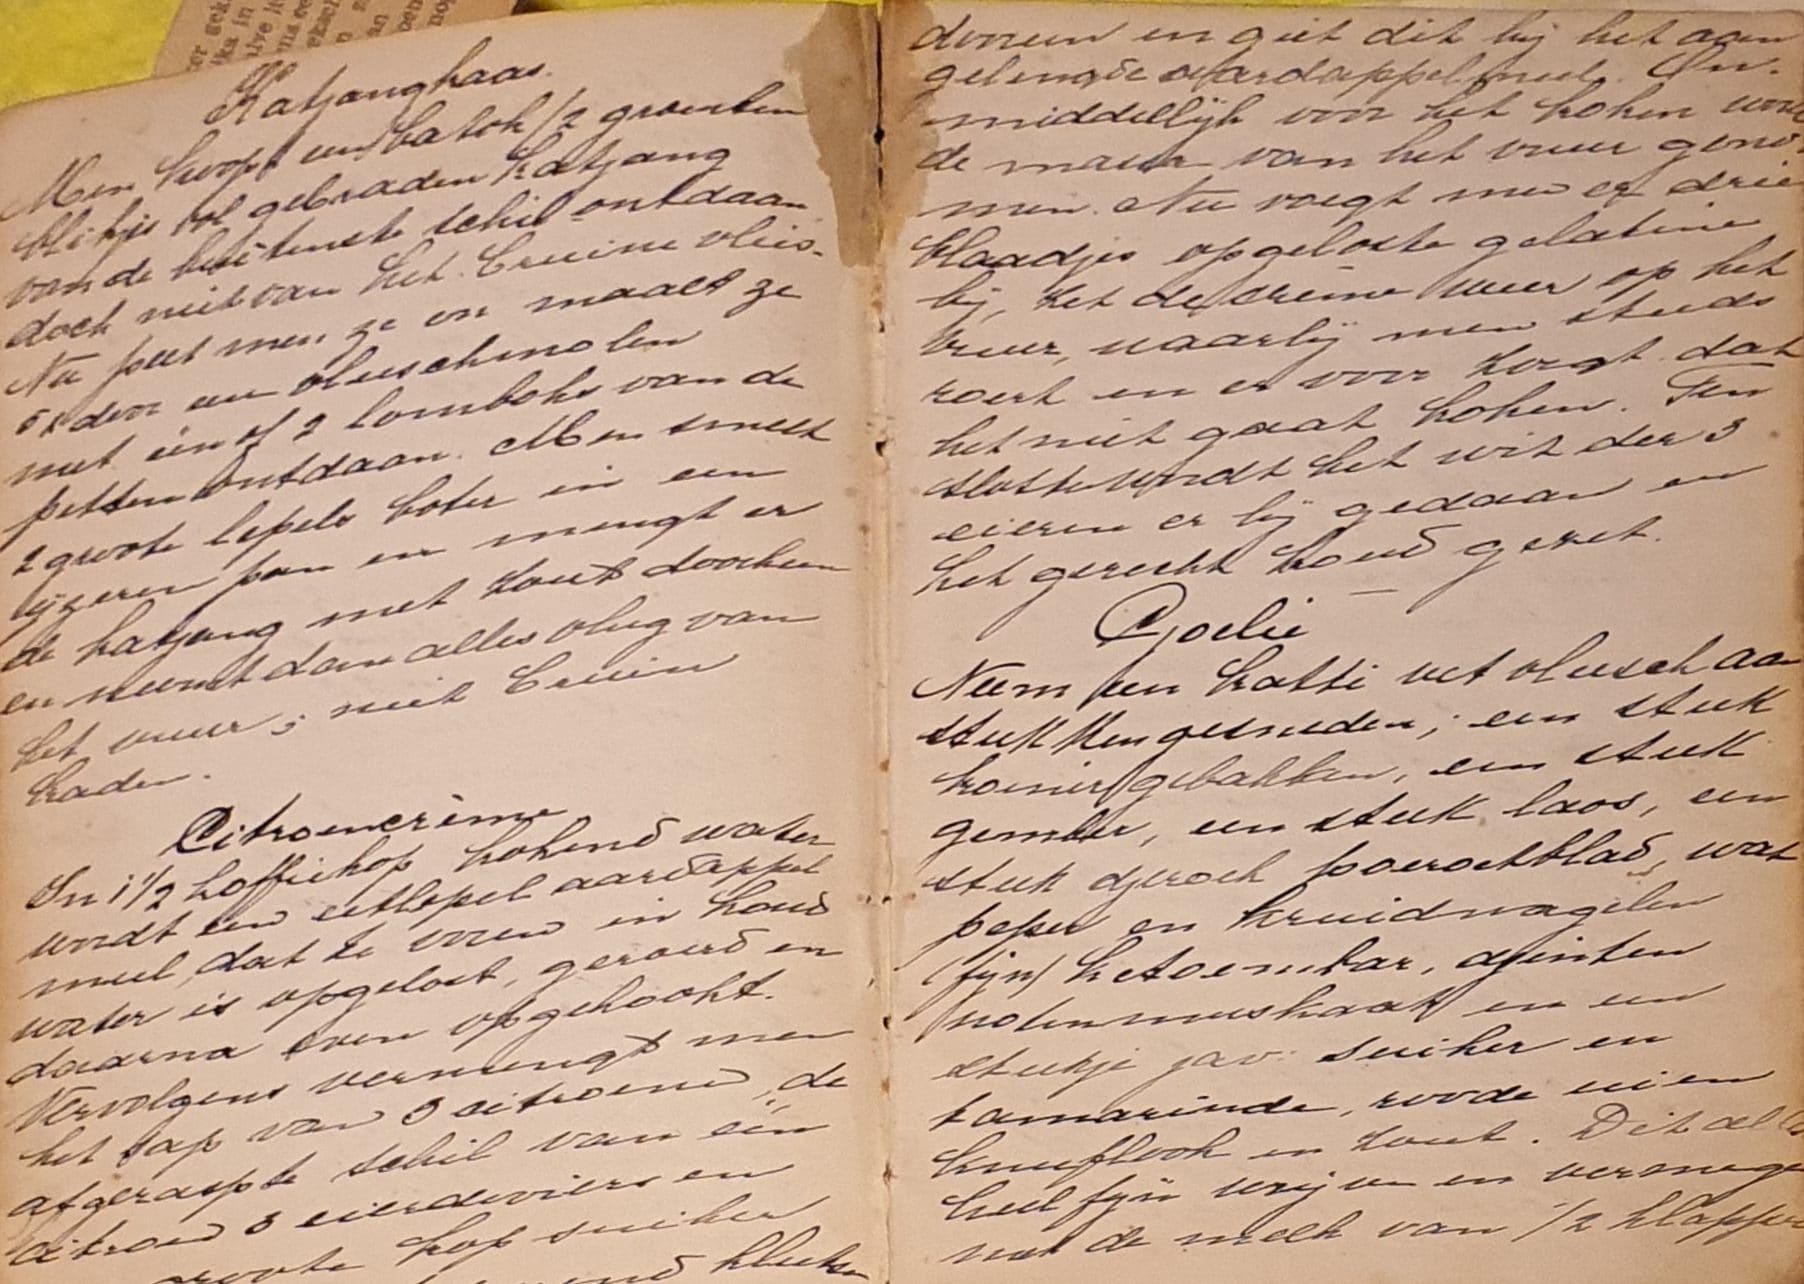 Katjangkaas.
Men koopt een batok 1/2 groenten
blikjes vol gebraden katjang
van de buitenste schil ontdaan
doch niet van het bruine vlies.
Nu peet men ze en maalt ze
5 x door een vleeschmolen
met één of 2 lomboks van de
pitten ontdaan. Men smelt
2 groote lepels boter in een
ijzeren pan en mengt er
de katjang met zout doorheen
en neemt dan alles vlug van
het vuur; niet bruin
braden.
Citroencrème
In 1 1/2 koffiekop kokend water
wordt een eetlepel aardappel
meel, dat te voren in koud
water is opgelost, geroerd en
daarna even opgekookt.
Vervolgens vermengt men
het sap van 3 citroenen, de
afgeraspte schil van één
citroen 3 eierdooiers en
groote kop suiker
kluts
dooreen en giet dit bij het aan
gelengde aardappelmeel. On-
middellijk voor het koken word
de massa van het vuur geno
men. Nu voegt men er drie
blaadjes opgeloste gelatine
bij, zet de crème weer op het
vuur, waarbij men steeds
roert en er voor zorgt dat
het niet gaat koken. Ten
slotte wordt het wit der 3
eieren er bij gedaan en
het gerecht koud gezet.
Goelie
Neem een katti vet vleesch aan
stukken gesneden; een stuk
koenir gebakken, een stuk
gember, een stuk laos, een
stuk djeroek poeroetblad, wat
peper en kruidnagelen
(fijn) ketoembar, djinten
notenmuskaat en een
stukje jav. suiker en
tamarinde, roode uien
knuflook en zout. Dit alles
heel fijn wrijven en vermenge
met de melk van 1/2 klapper